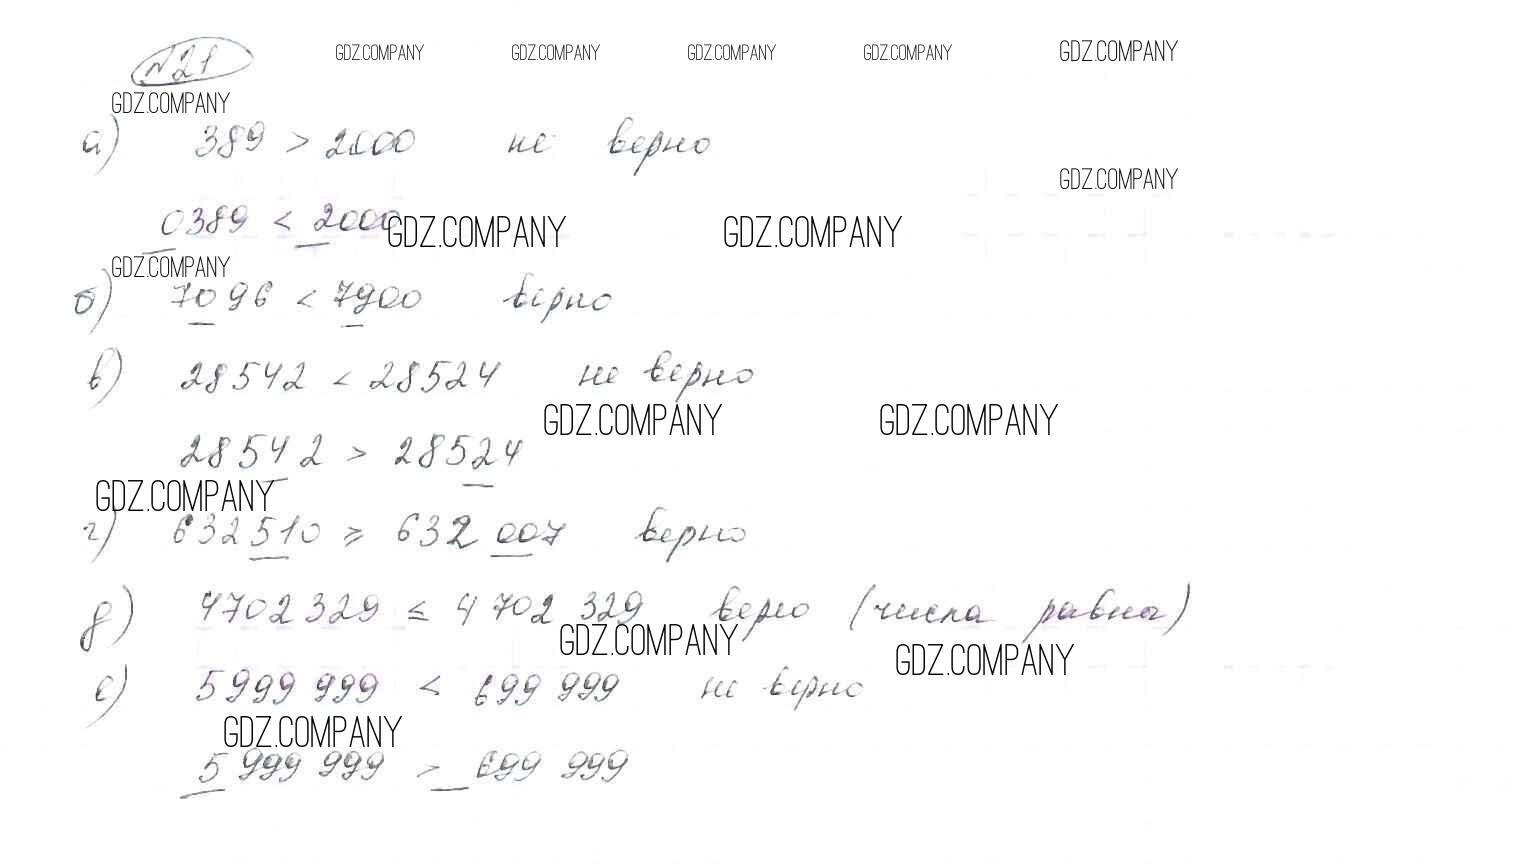 №21
GDZ.COMPANY GDZ.COMPANY GDZ.COMPANY GDZ.COMPANY GDZ.COMPANY
GDZ.COMPANY
а) 389 > 2000 не верно
GDZ.COMPANY
0389 < 2000
GDZ.COMPANY GDZ.COMPANY
GDZ.COMPANY
б) 7096 < 7900 верно
в) 28542 < 28524 не верно
GDZ.COMPANY GDZ.COMPANY
28542 > 28524
GDZ.COMPANY
г) 632510 ⩾ 632 007 верно
д) 4702329 ≤ 4 702 329 верно (числа равны)
GDZ.COMPANY GDZ.COMPANY
е) 5999 999 < 699 999 не верно
GDZ.COMPANY
5 999 999 > 699 999